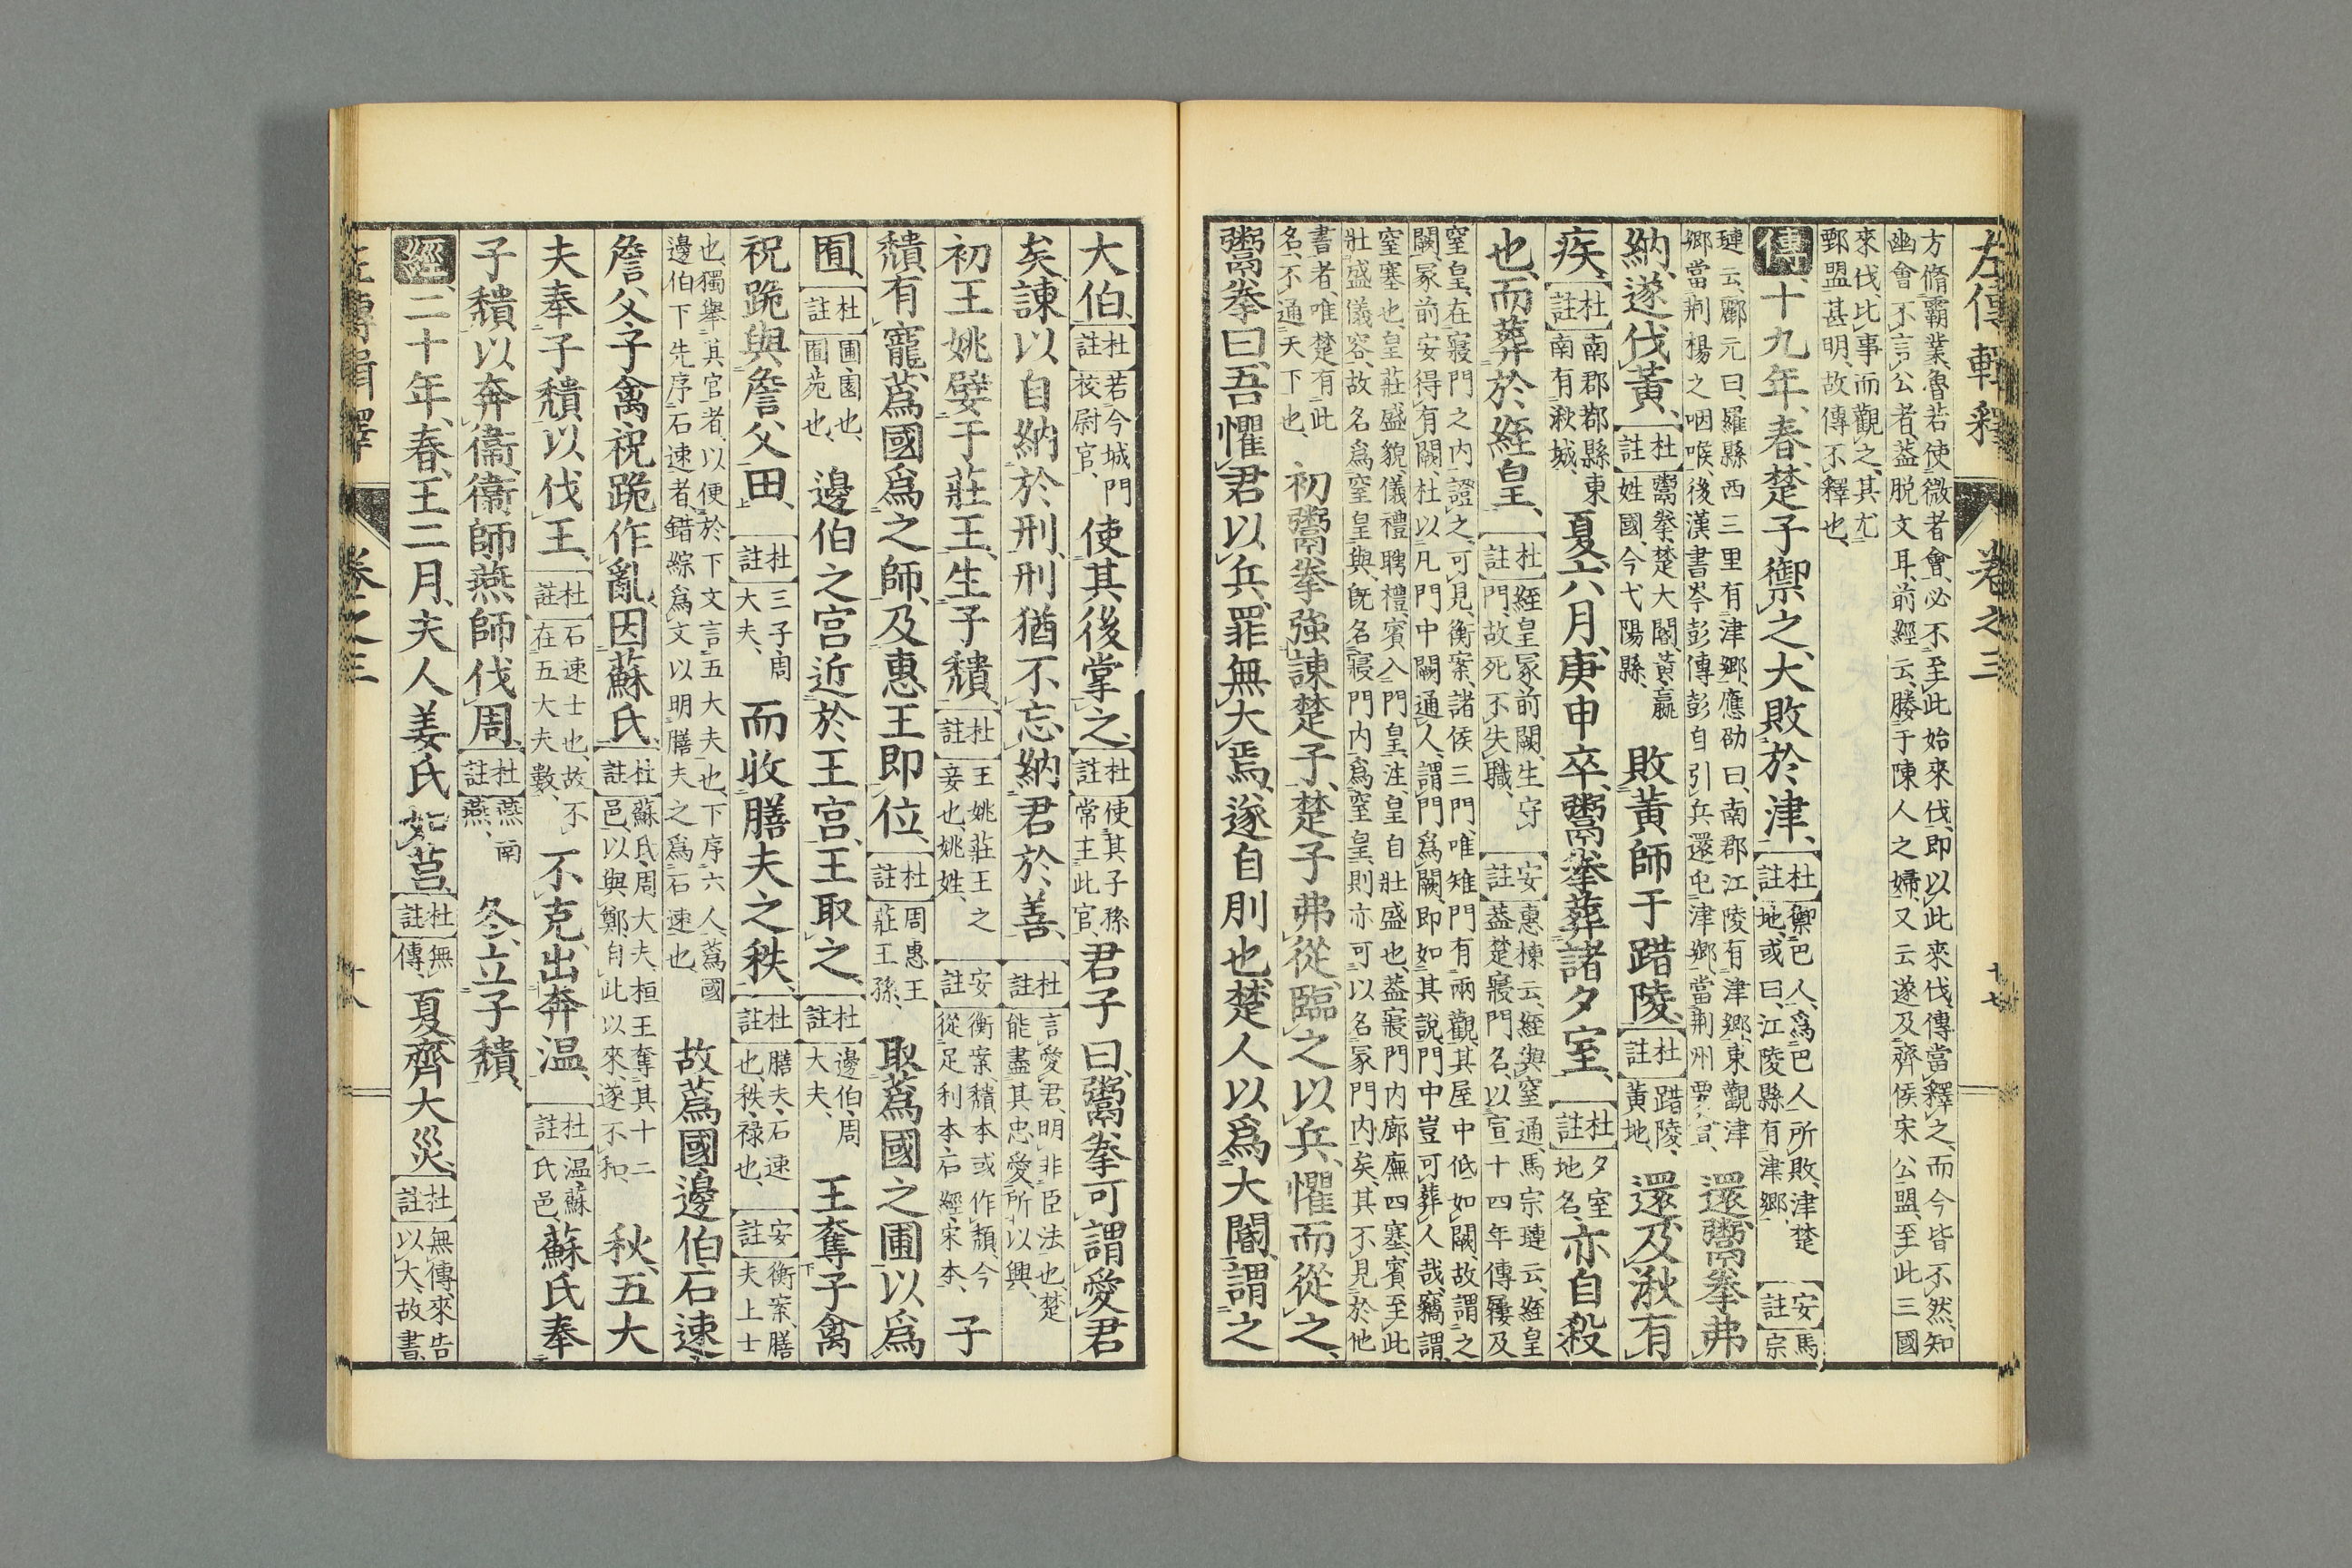 左傳輯釋 卷之三 十七
方脩霸業魯若使微者會必不至此始來伐即以此來伐傳當釋之而今皆不然知
幽會不言公者蓋脱文耳前經云滕于陳人之婦又云遂及齊侯宋公盟至此三國
來伐比事而觀之其尤
鄄盟甚明故傳不釋也
傳十九年春楚子禦之大敗於津
杜註 禦巴人爲巴人所敗津楚
地或曰江陵縣有津鄉
安註 馬
宗
璉云酈元曰羅縣西三里有津鄉應劭曰南郡江陵有津鄉東觀津
鄉當荆楊之咽喉後漢書岑彭傳彭自引兵還屯津鄉當荆州
還鬻拳弗
納遂伐黃
杜註 鬻拳楚大閽黃嬴
姓國今弋陽縣
敗黃師于踖陵
杜註 踖陵
黃地
還及湫有
疾
杜註 南郡鄀縣東
南有湫城
夏六月庚申卒鬻拳葬諸夕室
杜註 夕室
地名
亦自殺
也而葬於絰皇
杜註 絰皇冢前闕生守
門故死不失職
安註 惠棟云絰與窒通馬宗璉云絰皇
蓋楚寢門名以宣十四年傳屨及
窒皇在寢門之内證之可見衡案諸侯三門唯雉門有兩觀其屋中低如闕故謂之
闕冢前安得有闕杜以凡門中闕通人謂門爲闕即如其說門中豈可葬人哉竊謂
窒塞也皇莊盛貌儀禮聘禮賓入門皇注皇自壯盛也蓋寢門内廊廡四塞賓至此
壯盛儀容故名爲窒皇與既名寢門内爲窒皇則亦可以名冢門内矣其不見於他
書者唯楚有此
名不通天下也
初鬻拳強諫楚子楚子弗從臨之以兵懼而從之
鬻拳曰吾懼君以兵罪無大焉遂自刖也楚人以爲大閽謂之
大伯
杜註 若今城門
校尉官
使其後掌之
杜註 使其子孫
常主此官
君子曰鬻拳可謂愛君
矣諫以自納於刑刑猶不忘納君於善
杜註 言愛君明非臣法也楚
能盡其忠愛所以興
初王姚嬖于莊王生子穨
杜註 王姚莊王之
妾也姚姓
安註 衡案穨本或作頹今
從足利本石經宋本
子
穨有寵蔿國爲之師及惠王即位
杜註 周惠王
莊王孫
取蔿國之圃以爲
囿
杜註 圃園也
囿苑也
邊伯之宮近於王宮王取之
杜註 邊伯周
大夫
王奪子禽
祝跪與詹父田
杜註 三子周
大夫
而收膳夫之秩
杜註 膳夫石速
也秩禄也
安註 衡案膳
夫上士
也獨舉其官者以便於下文言五大夫也下序六人蔿國
邊伯下先序石速者錯綜爲文以明膳夫之爲石速也
故蔿國邊伯石速
詹父子禽祝跪作亂因蘇氏
杜註 蘇氏周大夫桓王奪其十二
邑以與鄭自此以來遂不和
秋五大
夫奉子穨以伐王
杜註 石速士也故不
在五大夫數
不克出奔温
杜註 温蘇
氏邑
蘇氏奉
子穨以奔衞衞師燕師伐周
杜註 燕南
燕
冬立子穨
經二十年春王二月夫人姜氏如莒
杜註 無
傳
夏齊大災
杜註 無傳來告
以大故書
左傳輯釋 卷之三